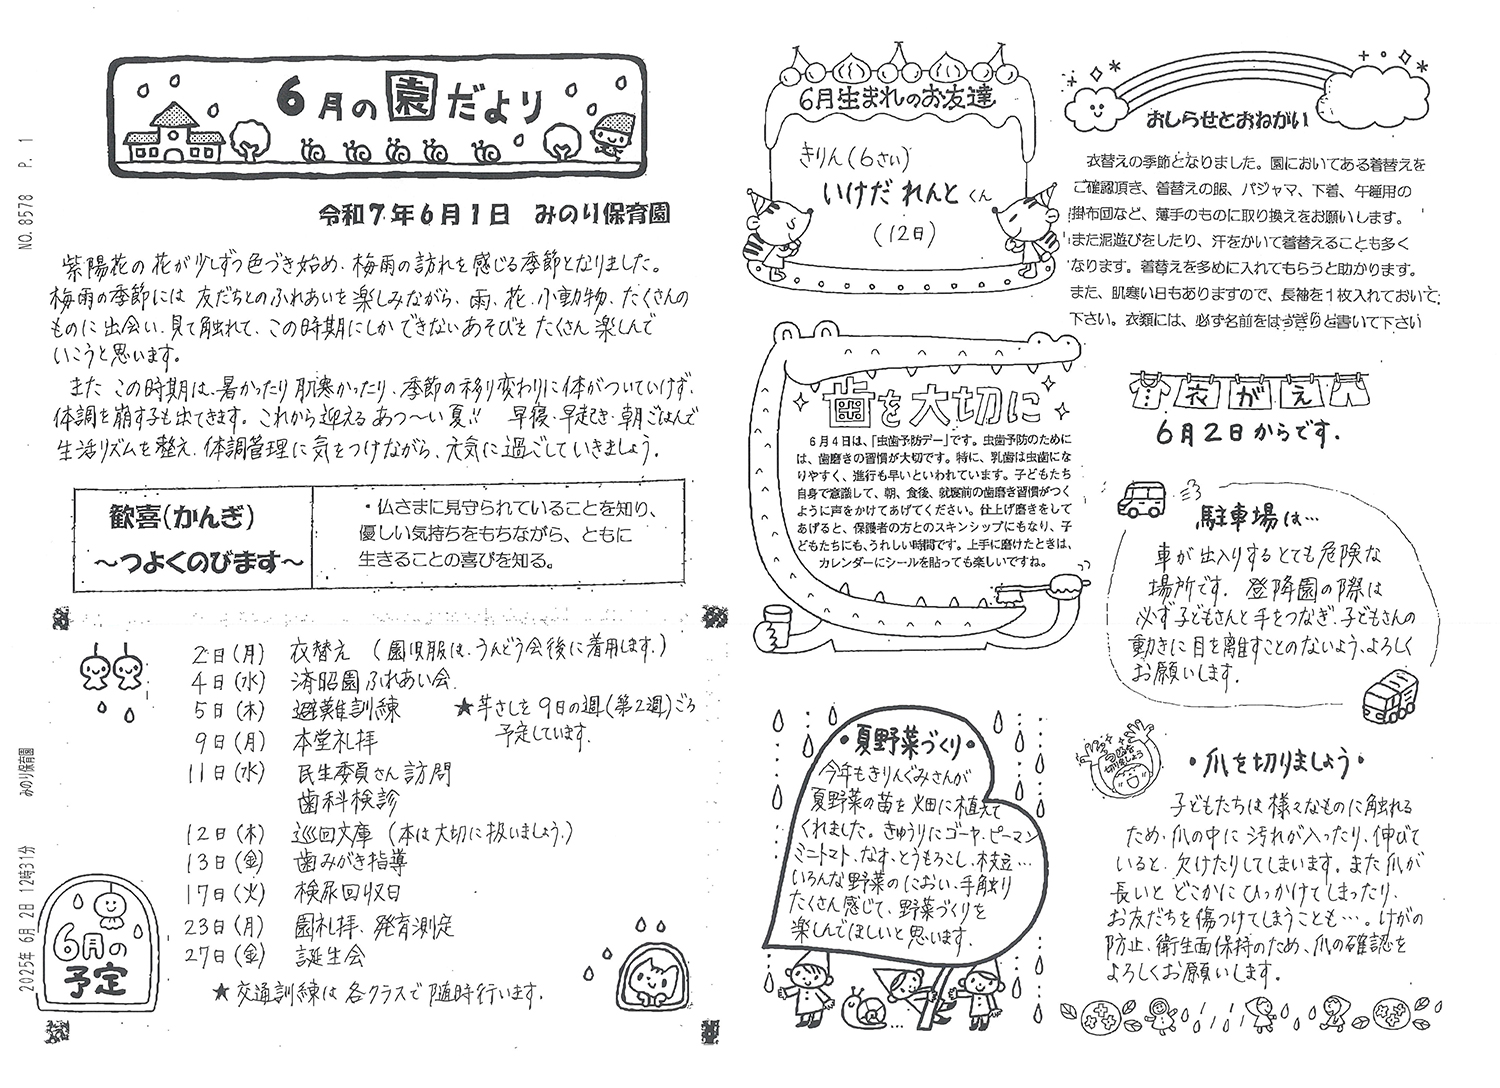 6月の園だより
令和7年6月1日 みのり保育園
紫陽花の花が少しずつ色づき始め、梅雨の訪れを感じる季節となりました。
梅雨の季節には友だちとのふれあいを楽しみながら、雨、花、小動物、たくさんの
ものに出会い、見て触れて、この時期にしかできないあそびをたくさん楽しんで
いこうと思います。
また この時期は、暑かったり肌寒かったり、季節の移り変わりに体がついていけず、
体調を崩す子も出てきます。これから迎えるあつ〜い夏!! 早寝・早起き・朝ごはんで
生活リズムを整え、体調管理に気をつけながら、元気に過ごしていきましょう。
歓喜(かんぎ)
〜つよくのびます〜
・仏さまに見守られていることを知り、
優しい気持ちをもちながら、ともに
生きることの喜びを知る。
2日(月) 衣替え (園児服は、うんどう会後に着用します。)
4日(水) 済昭園ふれあい会
5日(木) 避難訓練 ★芋さしを9日の週(第2週)ごろ
予定しています。
9日(月) 本堂礼拝
11日(水) 民生委員さん訪問
歯科検診
12日(木) 巡回文庫 (本は大切に扱いましょう。)
13日(金) 歯みがき指導
17日(火) 検尿回収日
23日(月) 園礼拝、発育測定
27日(金) 誕生会
★交通訓練は各クラスで随時行います。
6月の
予定
6月生まれのお友達
きりん(6さい)
いけだ れんとくん
(12日)
歯を大切に
6月4日は、「虫歯予防デー」です。虫歯予防のために
は、歯磨きの習慣が大切です。特に、乳歯は虫歯にな
りやすく、進行も早いといわれています。子どもたち
自身で意識して、朝、食後、就寝前の歯磨き習慣がつく
ように声をかけてあげてください。仕上げ磨きをして
あげると、保護者の方とのスキンシップにもなり、子
どもたちにも、うれしい時間です。上手に磨けたときは、
カレンダーにシールを貼っても楽しいですね。
・夏野菜づくり・
今年もきりんぐみさんが
夏野菜の苗を畑に植えて
くれました。きゅうりにゴーヤ、ピーマン
ミニトマト、なす、とうもろこし、枝豆…
いろんな野菜のにおい、手触り
たくさん感じて、野菜づくりを
楽しんでほしいと思います。
おしらせとおねがい
衣替えの季節となりました。園においてある着替えを
ご確認頂き、着替えの服、パジャマ、下着、午睡用の
掛布団など、薄手のものに取り換えをお願いします。
また泥遊びをしたり、汗をかいて着替えることも多く
なります。着替えを多めに入れてもらうと助かります。
また、肌寒い日もありますので、長袖を1枚入れておいて
下さい。衣類には、必ず名前をはっきりと書いて下さい
衣がえ
6月2日からです。
駐車場は…
車が出入りするとても危険な
場所です。登降園の際は
必ず子どもさんと手をつなぎ、子どもさんの
動きに目を離すことのないよう、よろしく
お願いします。
つめを
切りましょう
・爪を切りましょう・
子どもたちは様々なものに触れる
ため、爪の中に汚れが入ったり、伸びて
いると、欠けたりしてしまいます。また爪が
長いと どこかにひっかけてしまったり、
お友だちを傷つけてしまうことも…。けがの
防止、衛生面保持のため、爪の確認を
よろしくお願いします。
2025年 6月 2日 12時31分 みのり保育園 NO.8578 P. 1